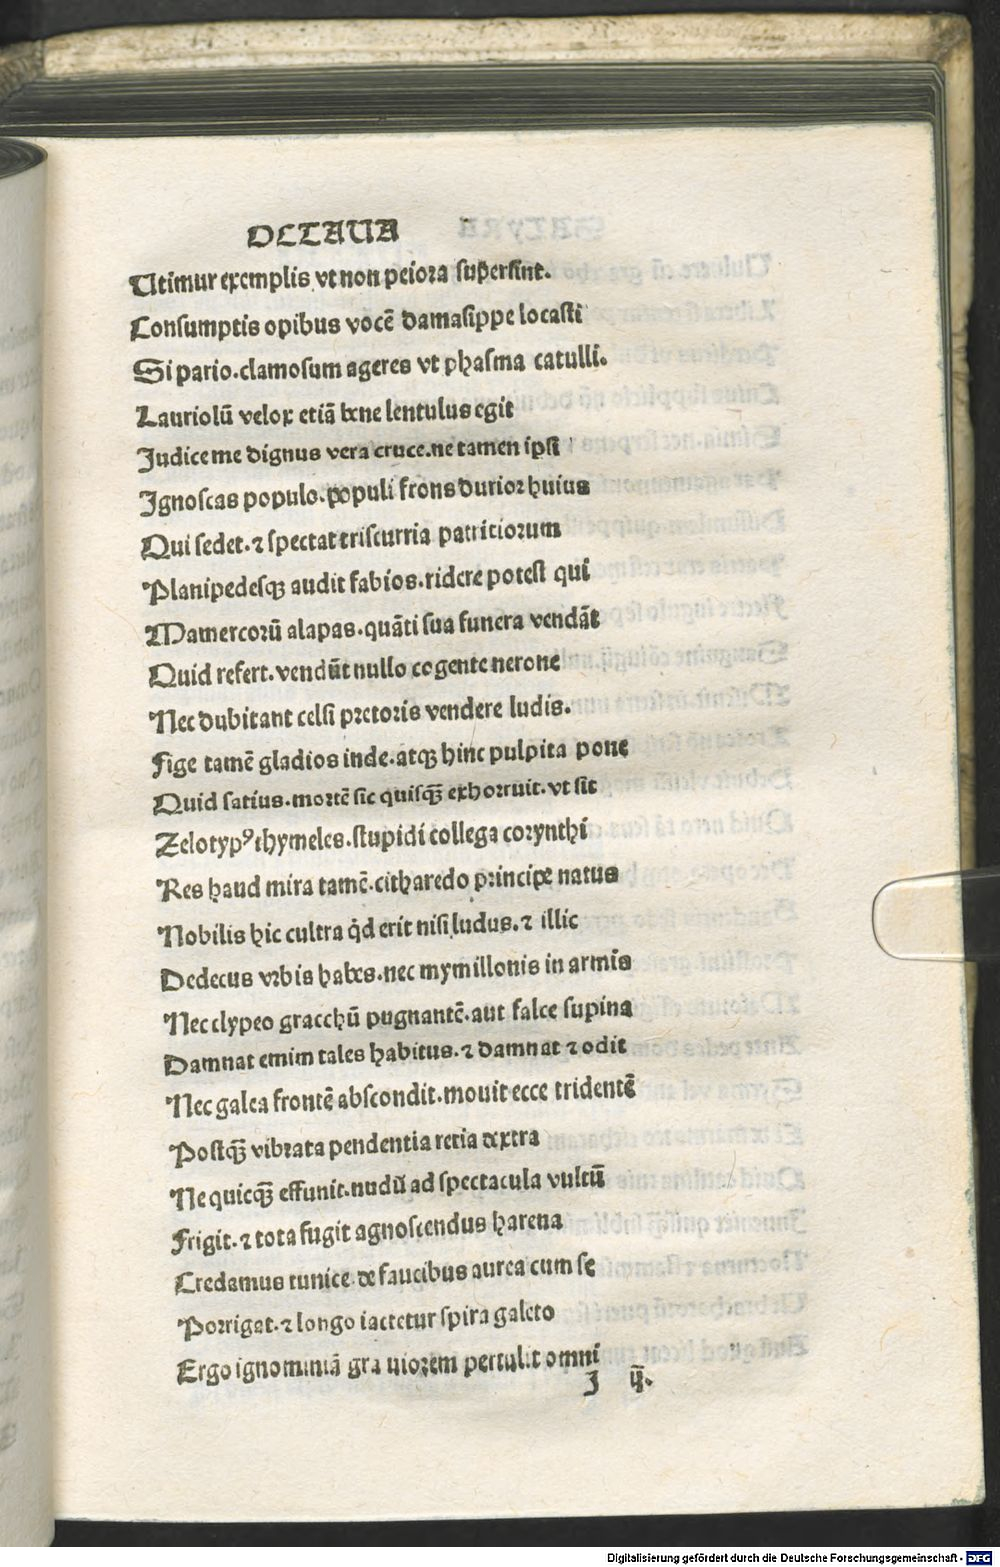 OCTAUA
Utimur exemplis vt non peiora supersint.
Consumptis opibus vocē damasippe locasti
Si pario.clamosum ageres vt phasma catulli.
Lauriolū velox etiā bene lentulus egit
Judice me dignus vera cruce.ne tamen ipsi
Ignoscas populo.populi frons durior huius
Qui sedet.⁊ spectat triscurria patritiorum
Planipedesqꝫ audit fabios.ridere potest qui
Mamercorū alapas.quāti sua funera vendāt
Quid refert.vendūt nullo cogente nerone
Nec dubitant celsi pretoris vendere ludis.
Fige tamē gladios inde.atqꝫ hinc pulpita pone
Quid satius.mortē sic quisqꝫ̄ exhorruit.vt sit
Zelotypꝰ thymeles.stupidi collega corynthi
Res haud mira tamē.citharedo principe natus
Nobilis hic cultra q̇d erit nisi ludus.⁊ illic
Dedecus vrbis habes.nec mymillonis in armis
Nec clypeo gracchū pugnantē.aut falce supina
Damnat emim tales habitus.⁊ damnat ⁊ odit
Nec galea frontē abscondit.mouit ecce tridentē
Postqꝫ̄ vibrata pendentia retia dextra
Ne quicqꝫ̄ effunit.nudū ad spectacula vultū
Frigit.⁊ tota fugit agnoscendus harena
Credamus tunice.de faucibus aurea cum se
Porrigat.⁊ longo iactetur spira galeto
Ergo ignominiā gra uiorem pertulit omni
I ij.
Digitalisierung gefördert durch die Deutsche Forschungsgemeinschaft - DFG